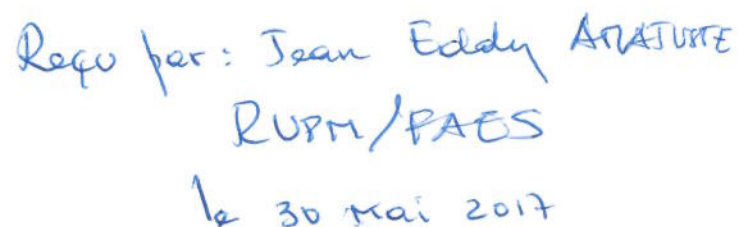 Reçu par: Jean Eddy
RUPM/PAES
le 30 Mai 2017